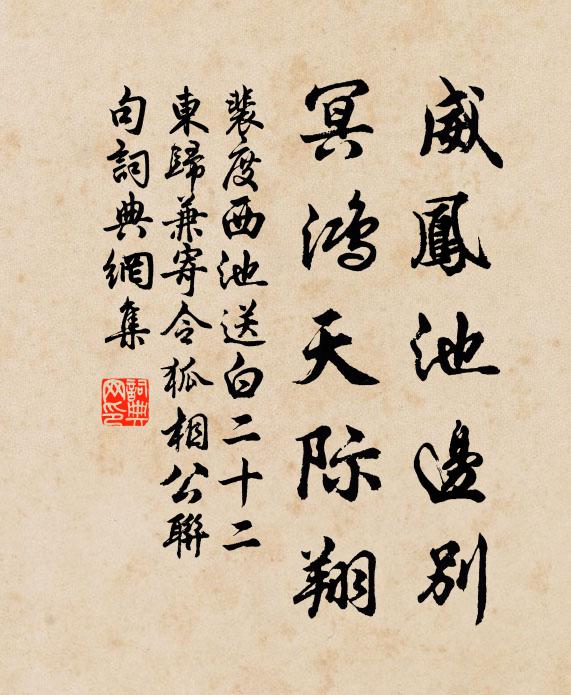 威鳳池邊別
冥鴻天際翔
裴度西池送白二十二
東歸兼寄令狐相公聯
句詞典網集
詞典
网印